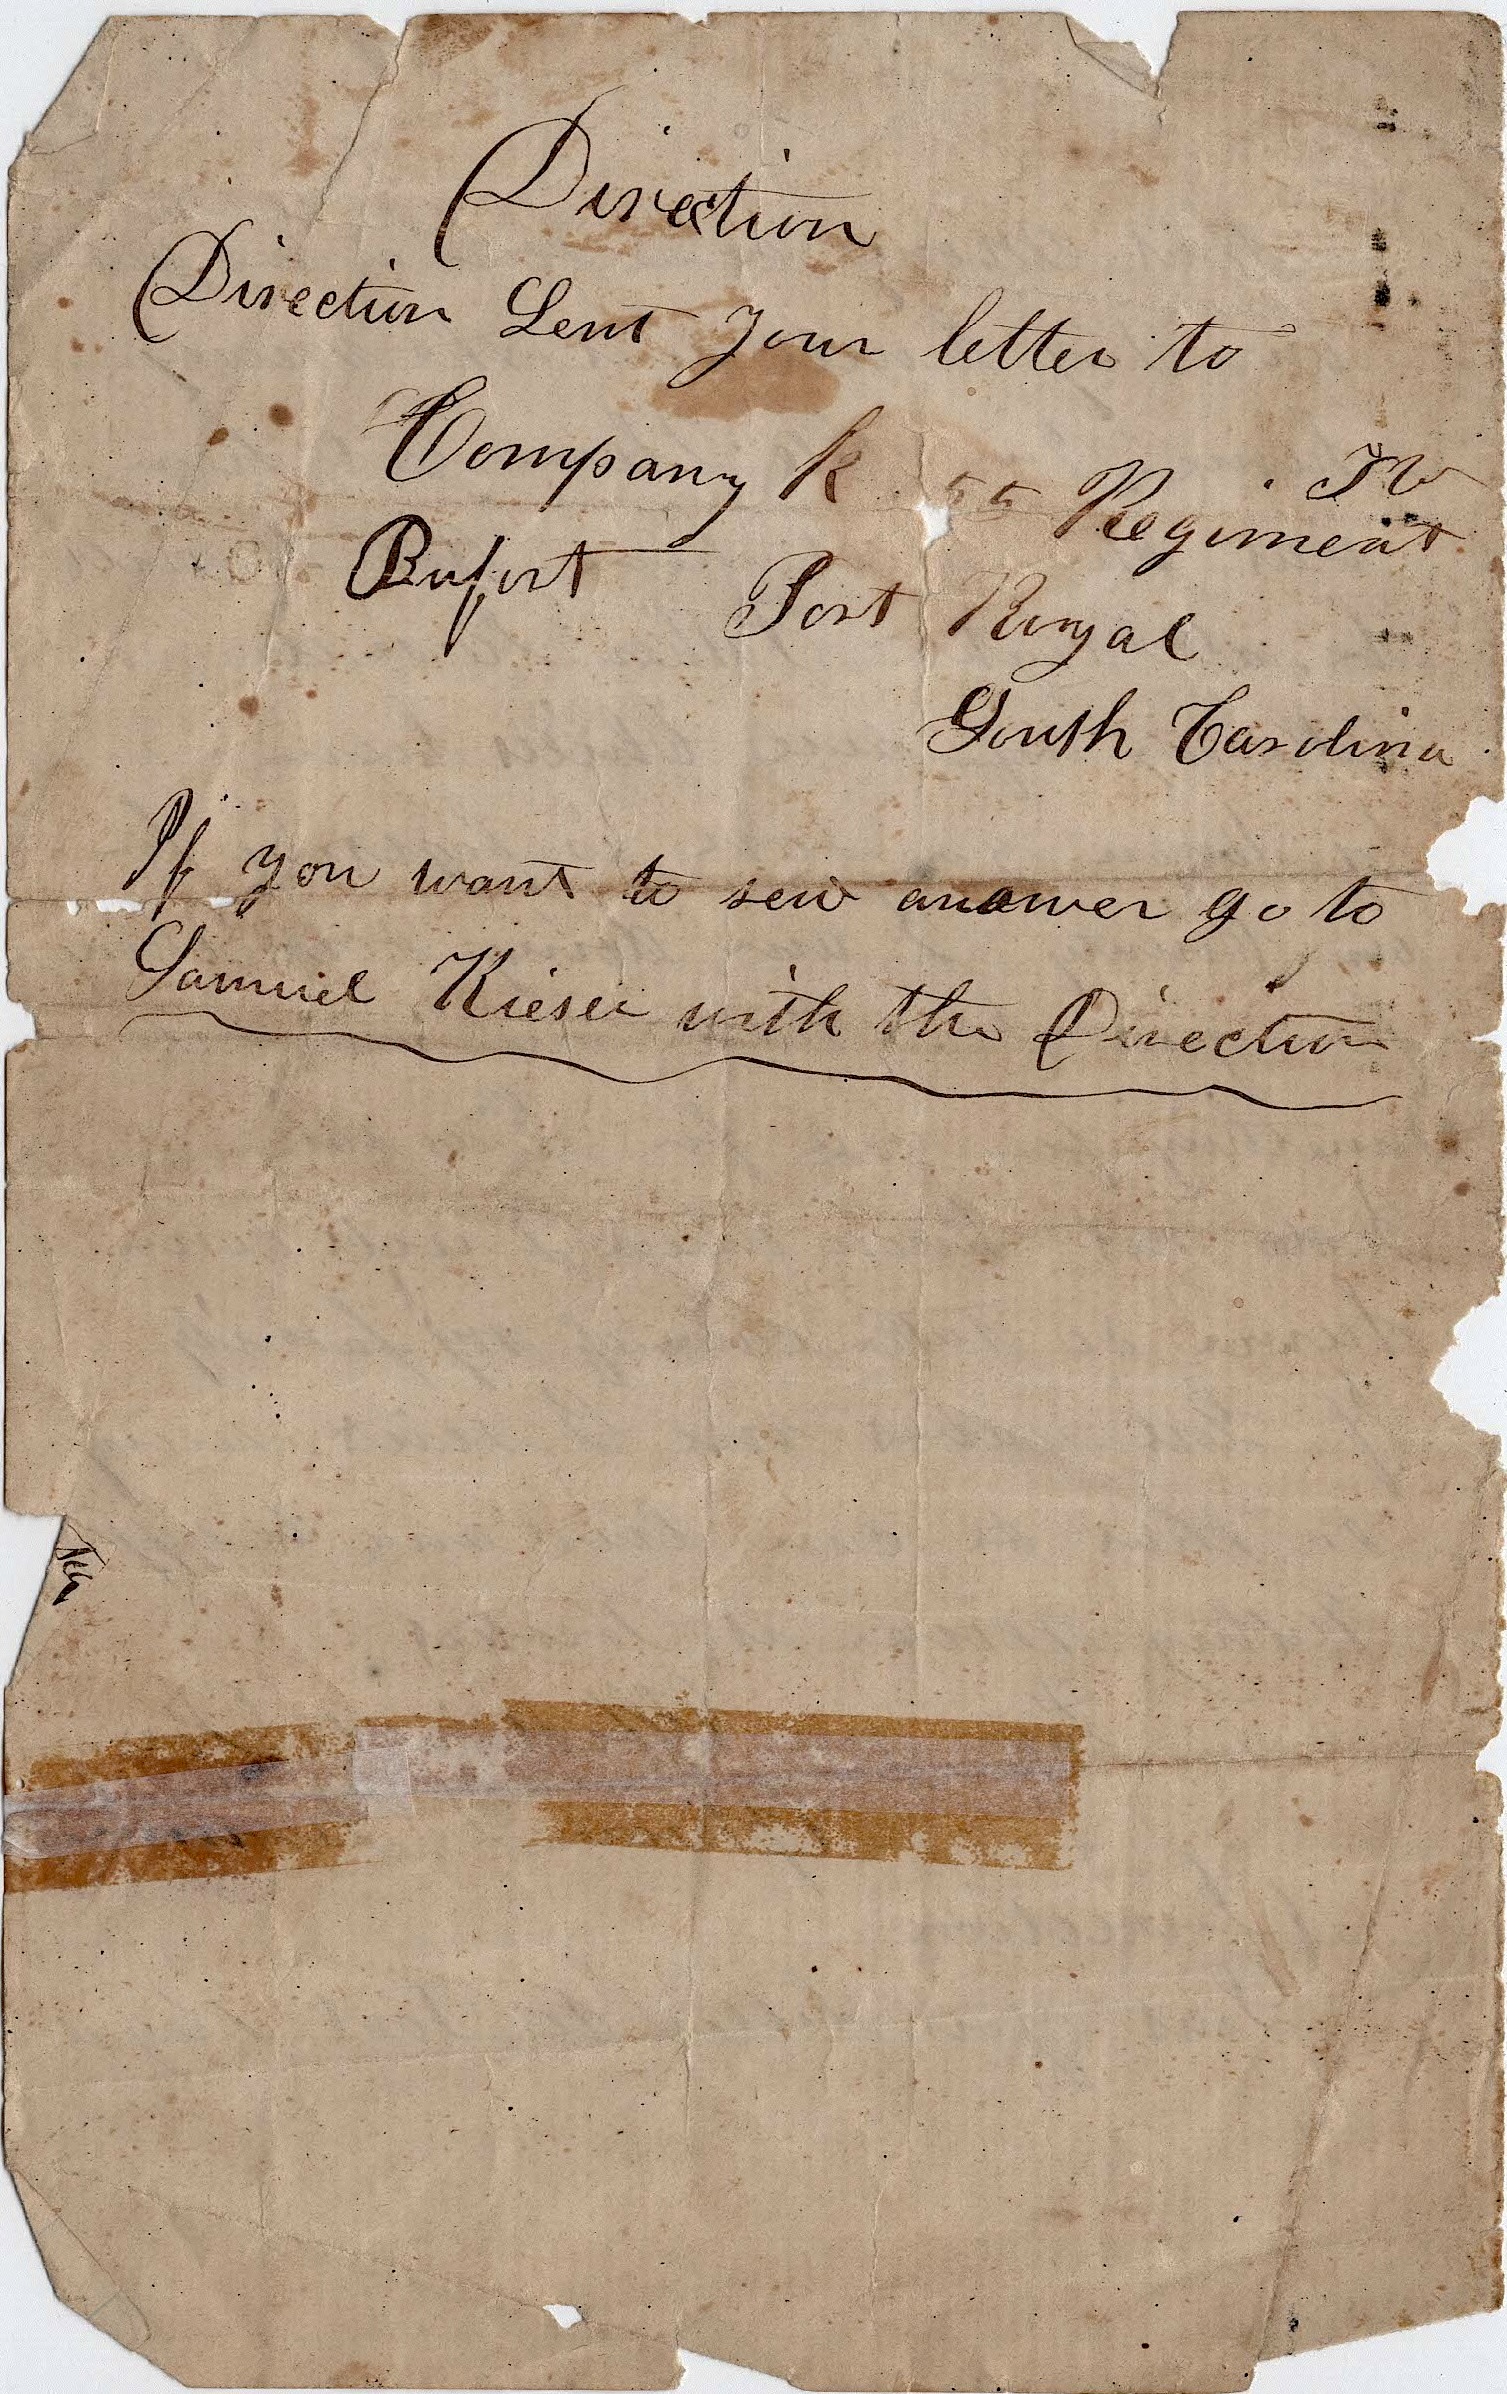 Direction
Direction Sent your letter to
Company K 55 Regiment
Bufort Port Royal
South Carolina
If you want to answer go to
Samuel Kieser with the Direction